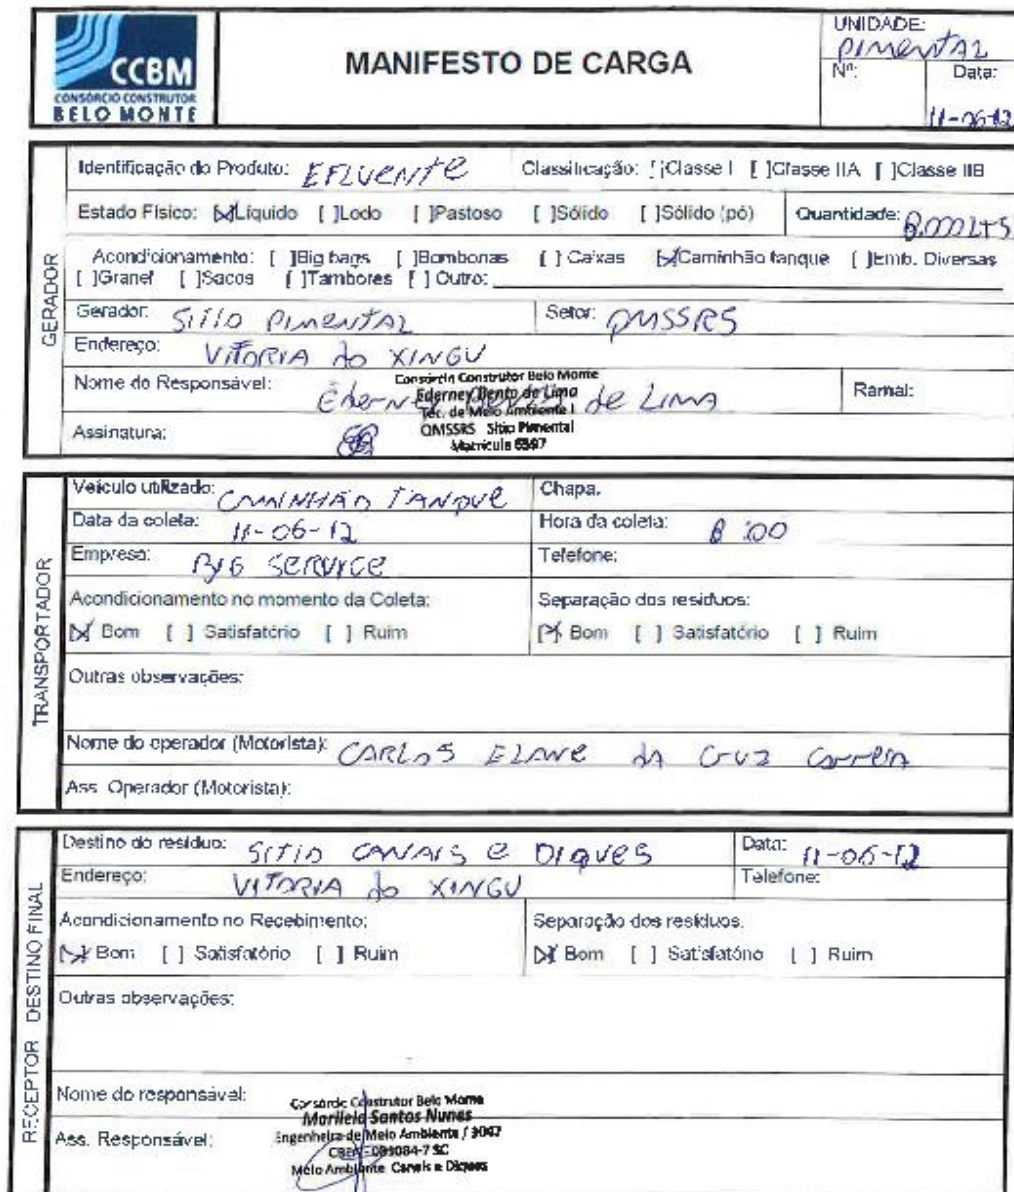 CCBM
CONSÓRCIO CONSTRUTOR
BELO MONTE
MANIFESTO DE CARGA
UNIDADE:
PIMENTAL
Nº: Data:
11-06-12
GERADOR
Identificação do Produto: EFLUENTE Classificação: [ ]Classe I [ ]Classe IIA [ ]Classe IIB
Estado Físico: [X]Líquido [ ]Lodo [ ]Pastoso [ ]Sólido [ ]Sólido (pó) Quantidade: 8.000LTS
Acondicionamento: [ ]Big bags [ ]Bombonas [ ] Caixas [X]Caminhão tanque [ ]Emb. Diversas
[ ]Granel [ ]Sacos [ ]Tambores [ ] Outro:
Gerador: SITIO PIMENTAL Setor: QMSSRS
Endereço: VITORIA do XINGU
Nome do Responsável: Ederney Bento de LIMA Ramal:
Consórcio Construtor Belo Monte
Ederney Bento de Lima
Tec. de Meio Ambiente I
QMSSRS Sítio Pimental
Matrícula 6597
Assinatura:
TRANSPORTADOR
Veículo utilizado: CAMINHÃO TANQUE Chapa.
Data da coleta: 11-06-12 Hora da coleta: 8:00
Empresa: BIG SERVICE Telefone:
Acondicionamento no momento da Coleta: Separação dos resíduos:
[X] Bom [ ] Satisfatório [ ] Ruim [X] Bom [ ] Satisfatório [ ] Ruim
Outras observações:
Nome do operador (Motorista): CARLOS da CRUZ Correia
Ass. Operador (Motorista):
RECEPTOR DESTINO FINAL
Destino do resíduo: SITIO CANAIS e DIQUES Data: 11-06-12
Endereço: VITORIA do XINGU Telefone:
Acondicionamento no Recebimento: Separação dos resíduos.
[X] Bom [ ] Satisfatório [ ] Ruim [X] Bom [ ] Satisfatório [ ] Ruim
Outras observações:
Nome do responsável:
Consórcio Construtor Belo Monte
Santos Nunes
Engenheira de Meio Ambiente /
Meio Ambiente Canais e Diques
Ass. Responsável: